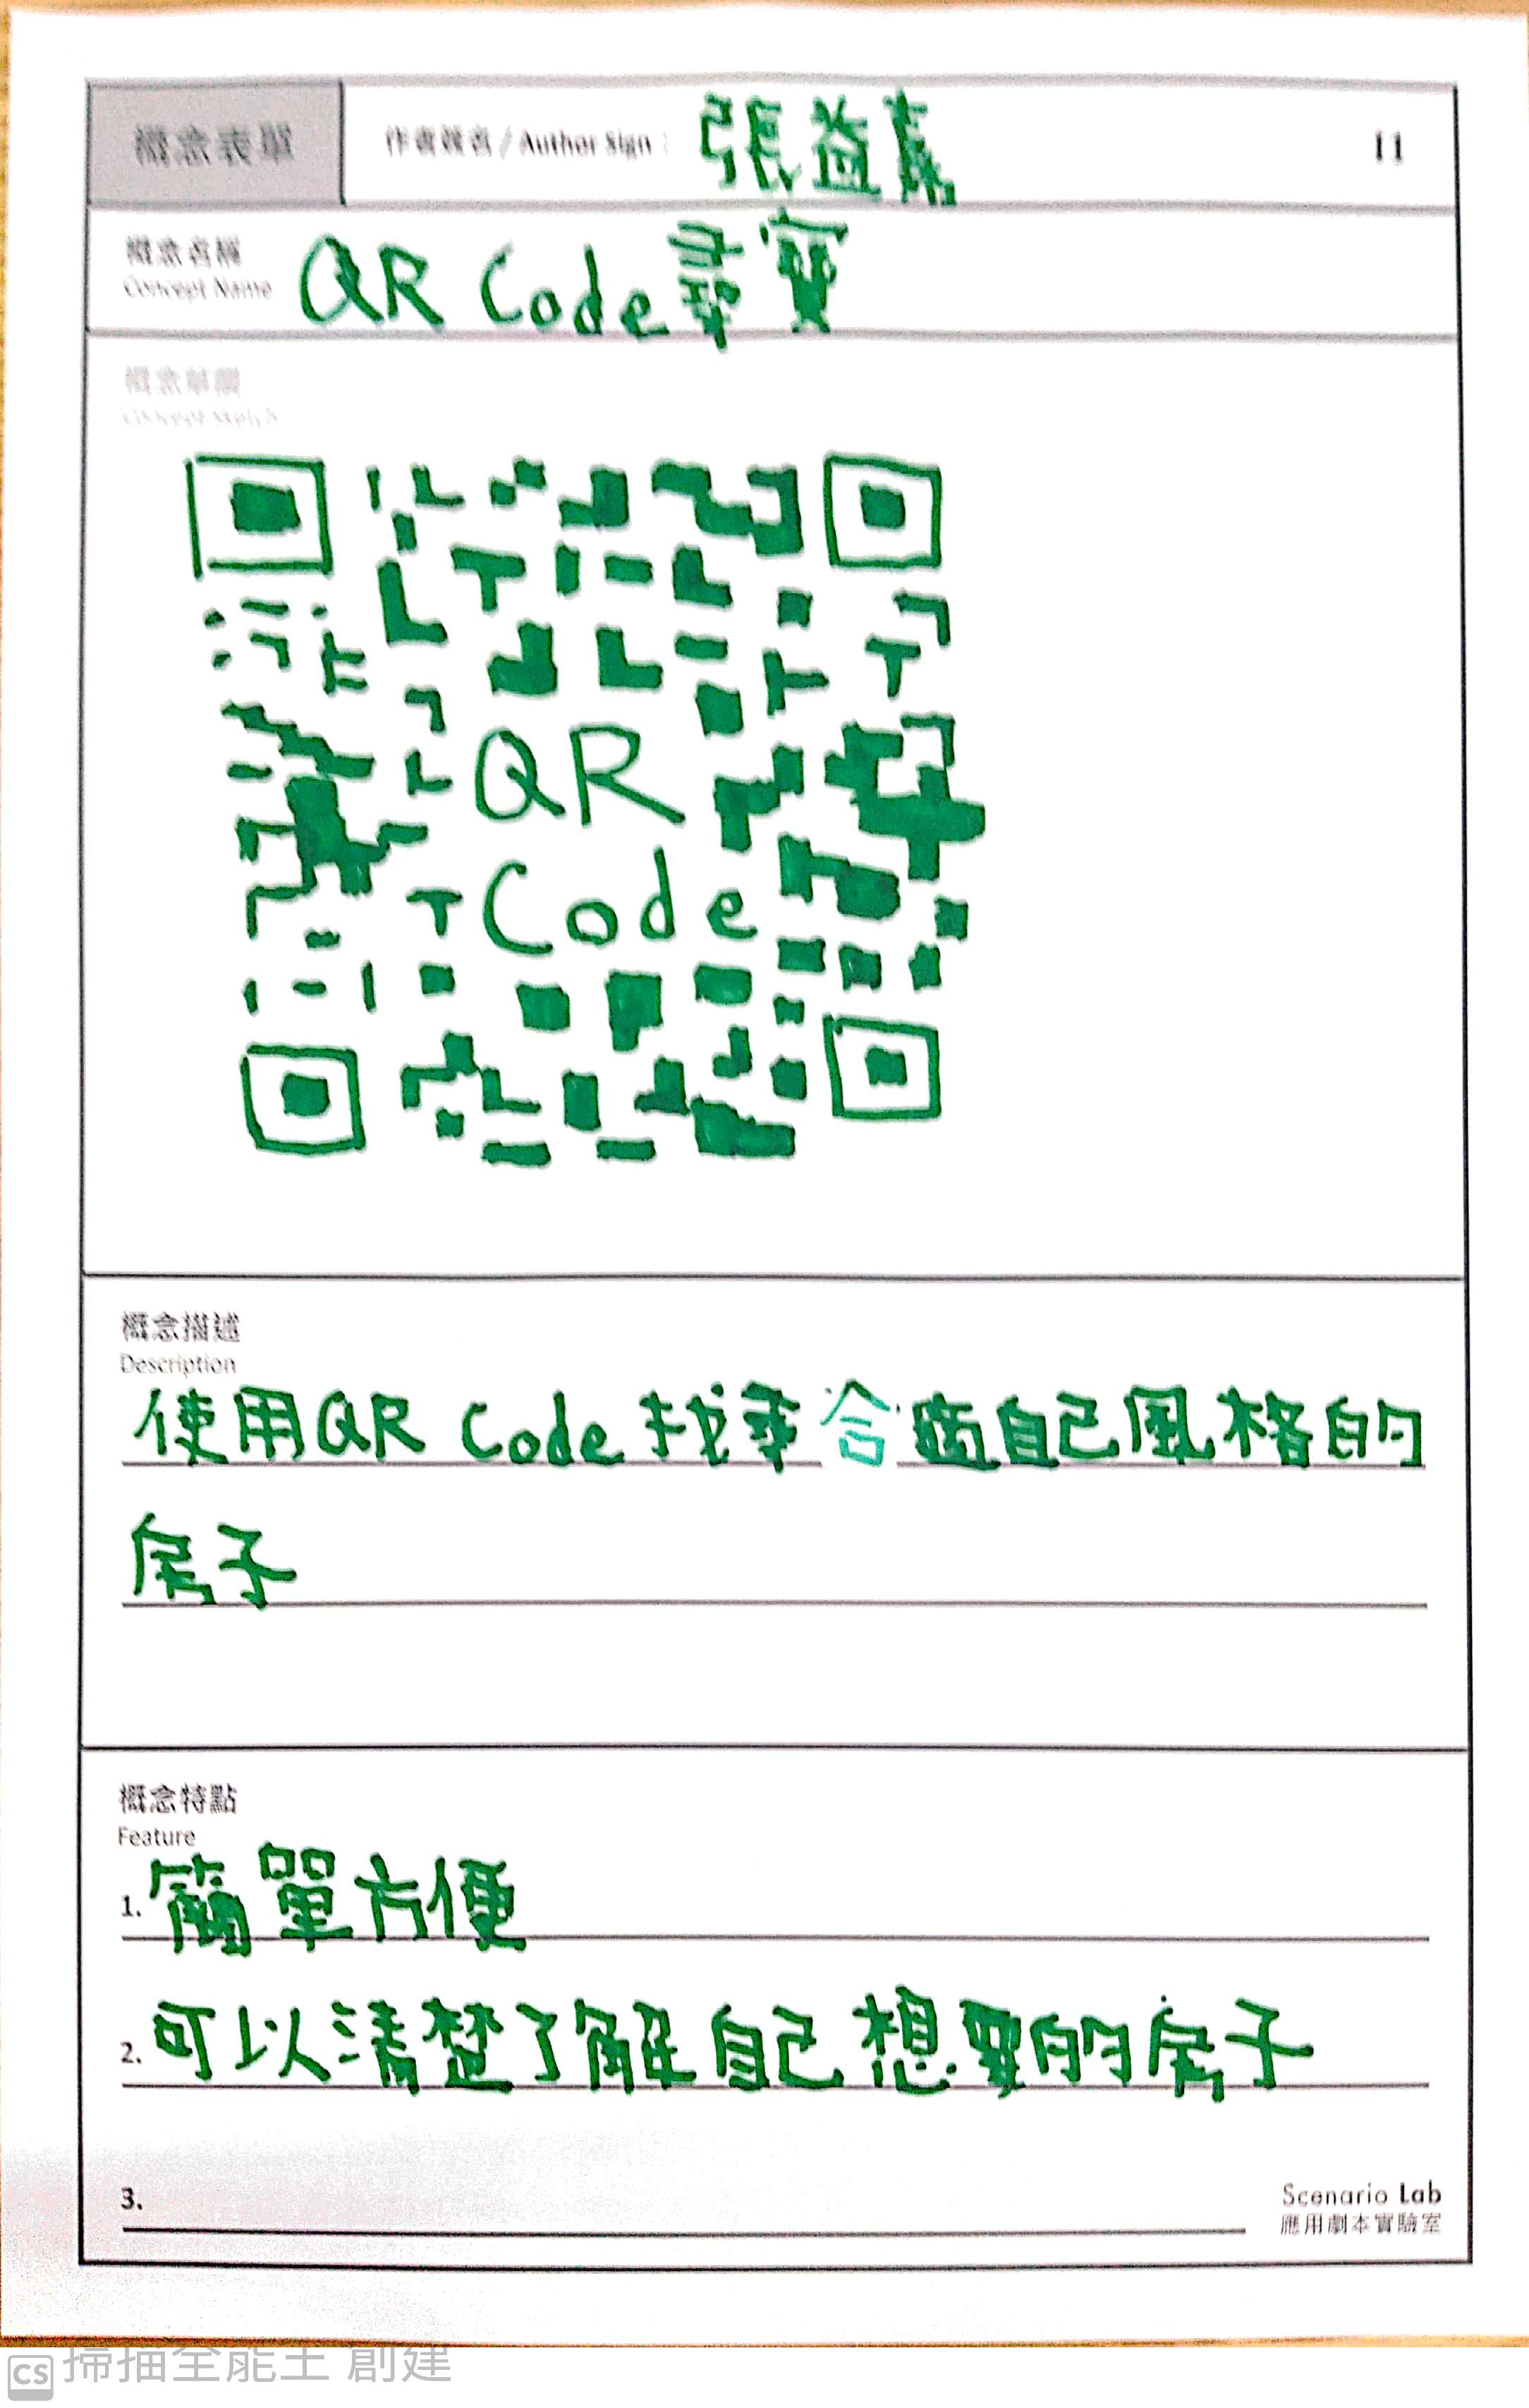 概念表單
作者簽名 / Author Sign :
張益
11
概念名稱
Concept Name
QR Code 尋寶
概念草圖
Concept Sketch
QR
Code
概念描述
Description
使用QR Code 找尋合適自己風格的
房子
概念特點
Feature
1. 簡單方便
2. 可以清楚了解自己想要的房子
3.
Scenario Lab
應用劇本實驗室
CS 掃描全能王 創建